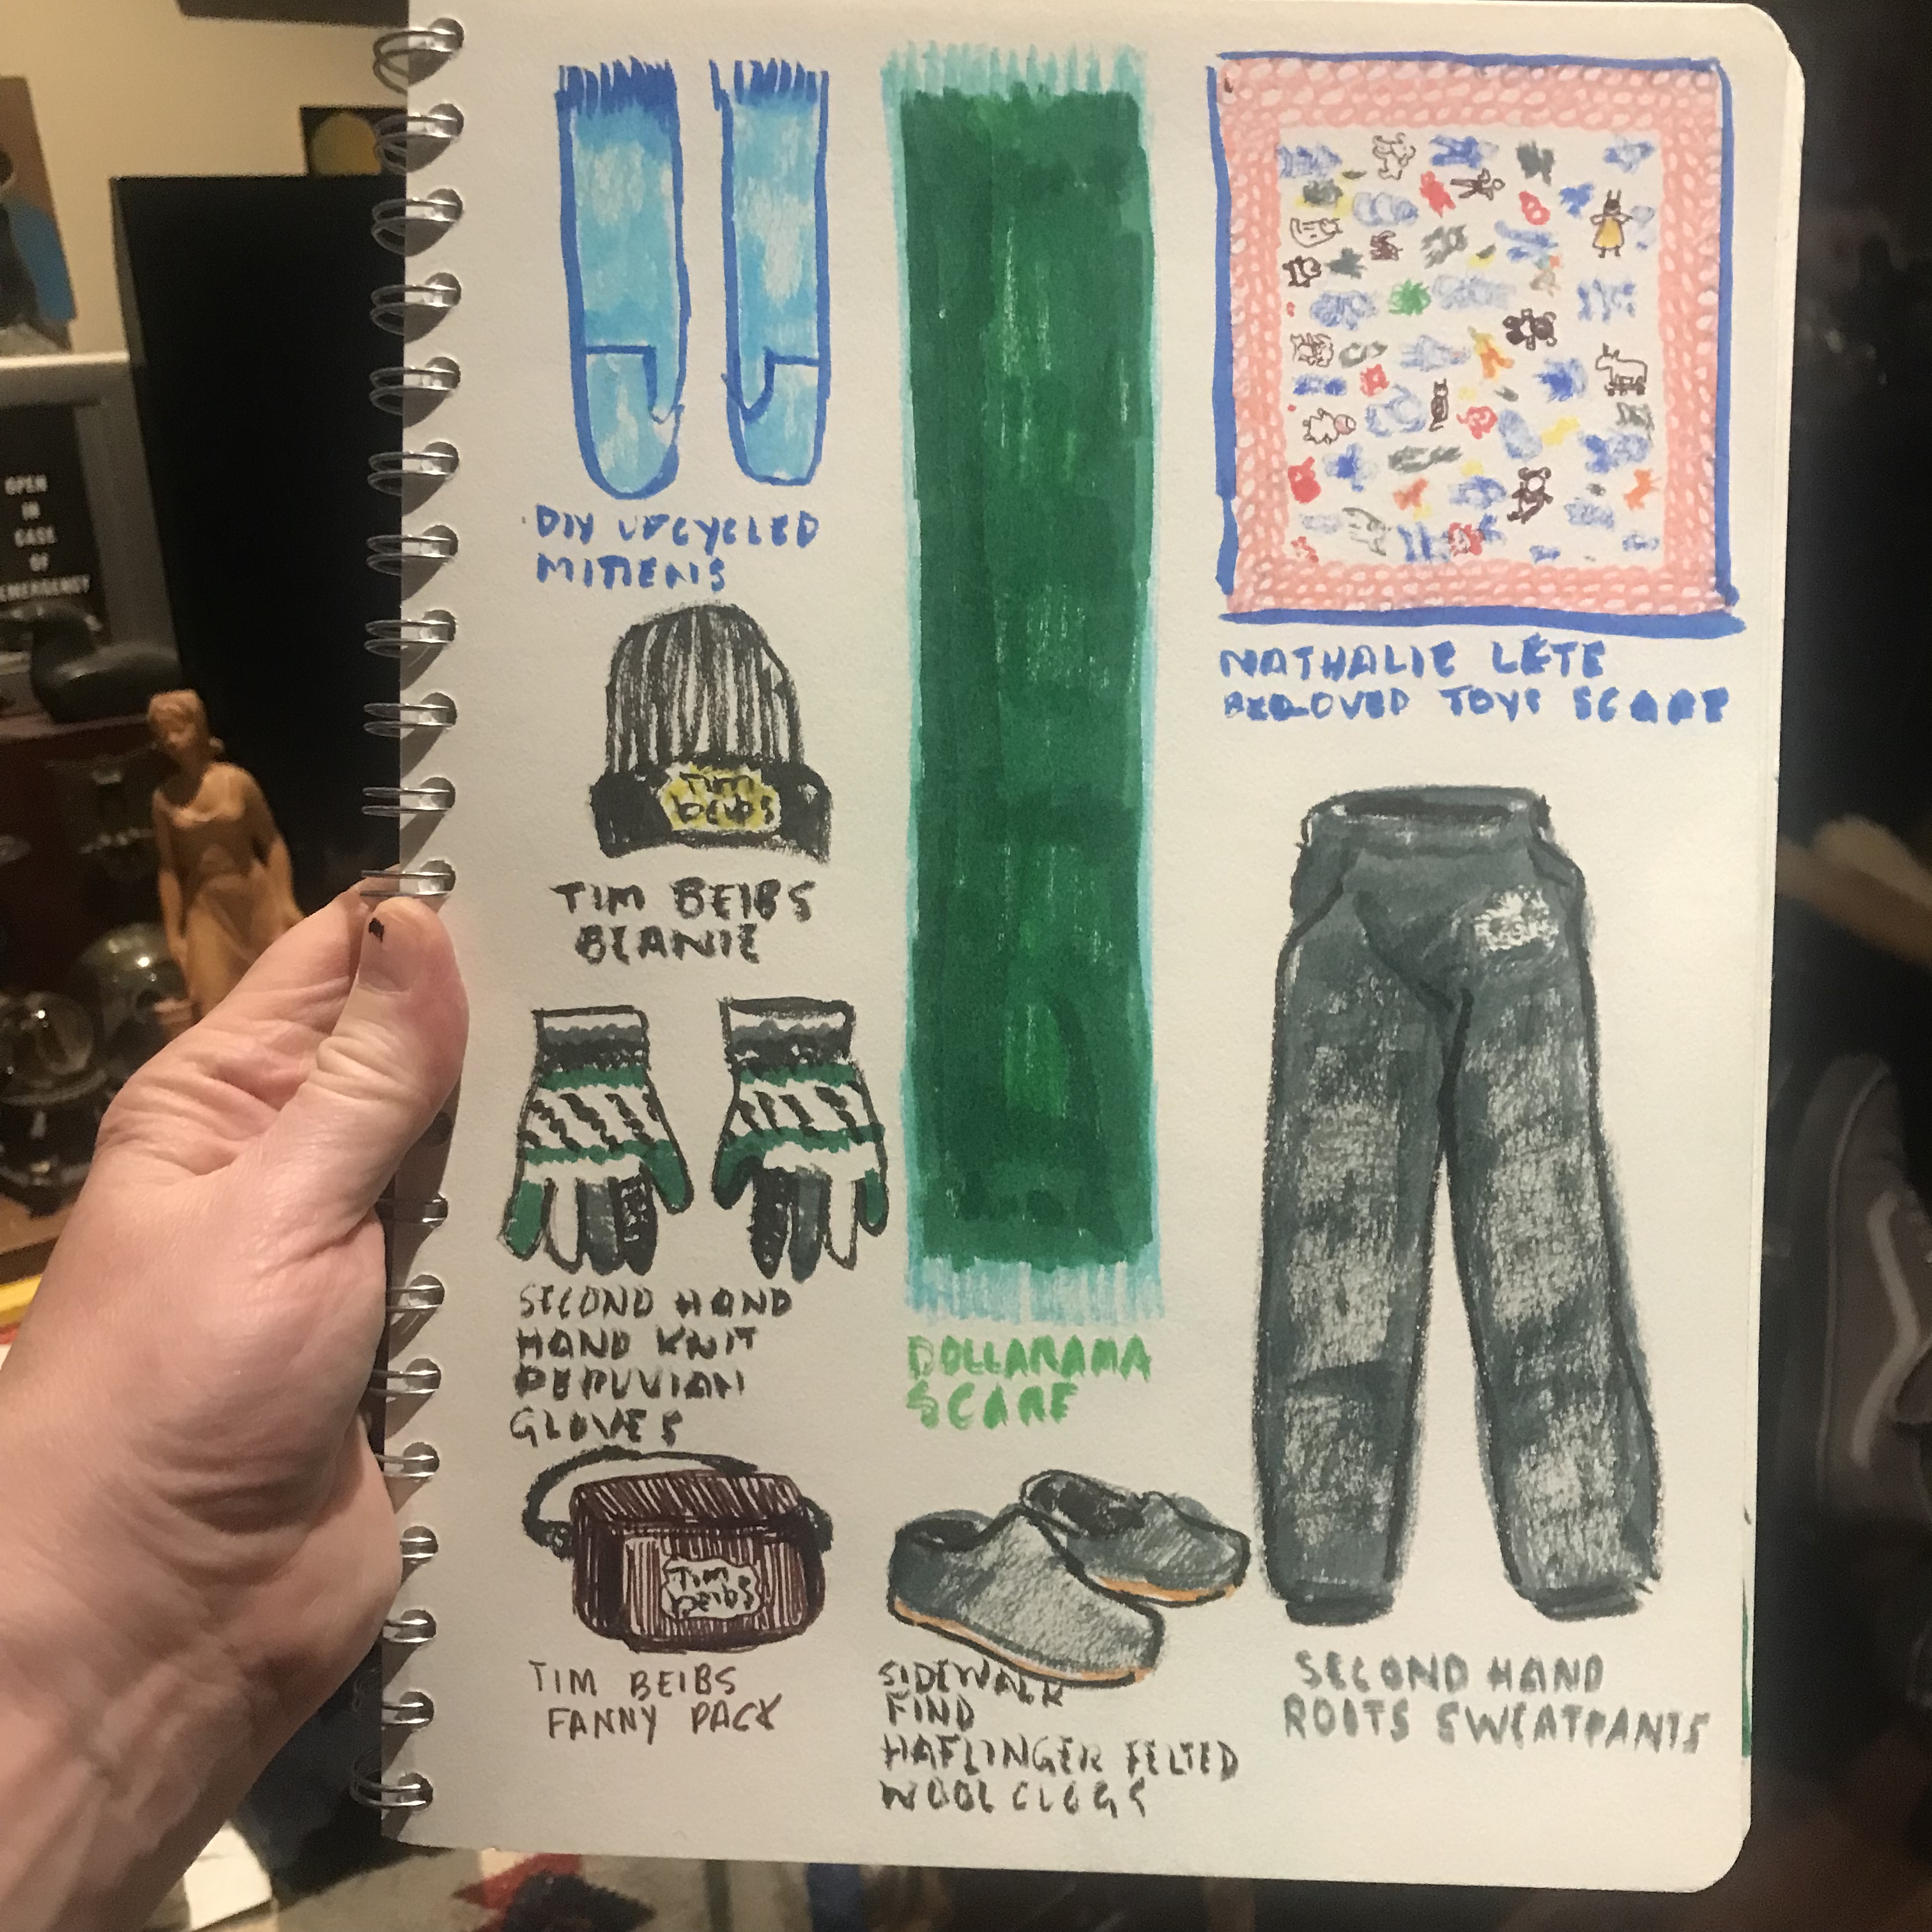 OPEN
IN
CASE
OF
EMERGENCY
DIY UPCYCLED
MITTENS
Tim
beibs
TIM BEIBS
BEANIE
SECOND HAND
HAND KNIT
PERUVIAN
GLOVES
Tim
beibs
TIM BEIBS
FANNY PACK
DOLLARAMA
SCARF
SIDEWALK
FIND
HAFLINGER FELTED
WOOL CLOGS
NATHALIE LÉTE
BELOVED TOYS SCARF
SECOND HAND
ROOTS SWEATPANTS